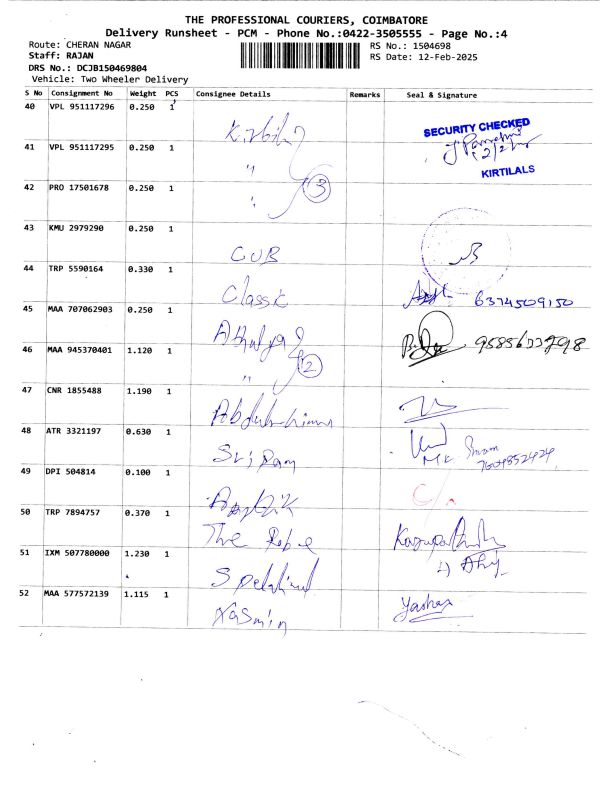 THE PROFESSIONAL COURIERS, COIMBATORE
Delivery Runsheet - PCM - Phone No.:0422-3505555 - Page No.:4
Route: CHERAN NAGAR RS No.: 1504698
Staff: RAJAN RS Date: 12-Feb-2025
DRS No.: DCJB150469804
Vehicle: Two Wheeler Delivery
S No Consignment No Weight PCS Consignee Details Remarks Seal & Signature
40 VPL 951117296 0.250 1
SECURITY CHECKED
41 VPL 951117295 0.250 1 "
KIRTILALS
42 PRO 17501678 0.250 1 " 3
43 KMU 2979290 0.250 1
CUB
44 TRP 5590164 0.330 1
Classic 6374509150
45 MAA 707062903 0.250 1
Athulya
46 MAA 945370401 1.120 1
" 2
47 CNR 1855488 1.190 1
48 ATR 3321197 0.630 1
Sri Ram
49 DPI 504814 0.100 1
50 TRP 7894757 0.370 1
The
51 IXM 507780000 1.230 1
52 MAA 577572139 1.115 1
Yasmin